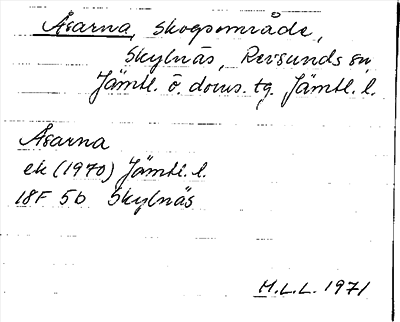 Åsarna, skogsområde,
Skylnäs, Revsunds sn,
Jämtl. ö. doms. tg. Jämtl. l.
Åsarna
ek (1970) Jämtl. l.
18F 5b Skylnäs
H.L.L. 1971